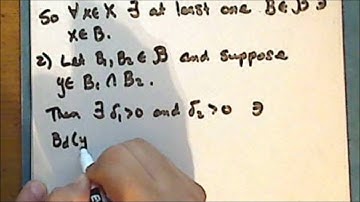 So ∀ x∈X ∃ at least one B∈𝓑 ∋
x∈B.
2) Let B₁, B₂ ∈ 𝓑 and suppose
y∈B₁ ∩ B₂.
Then ∃ δ₁>0 and δ₂>0 ∋
B_d(y